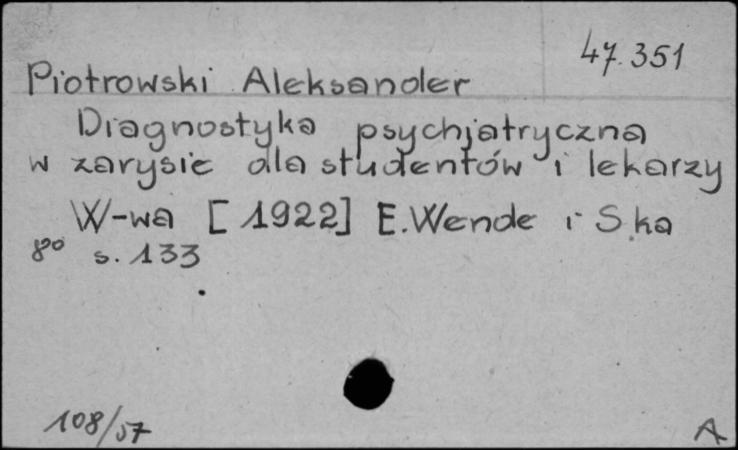 47.351
Piotrowski Aleksander
Diagnostyka psychjatryczna
w zarysie dla studentów i lekarzy
W-wa [1922] E. Wende i S.ka
8° s. 133
108/57
A